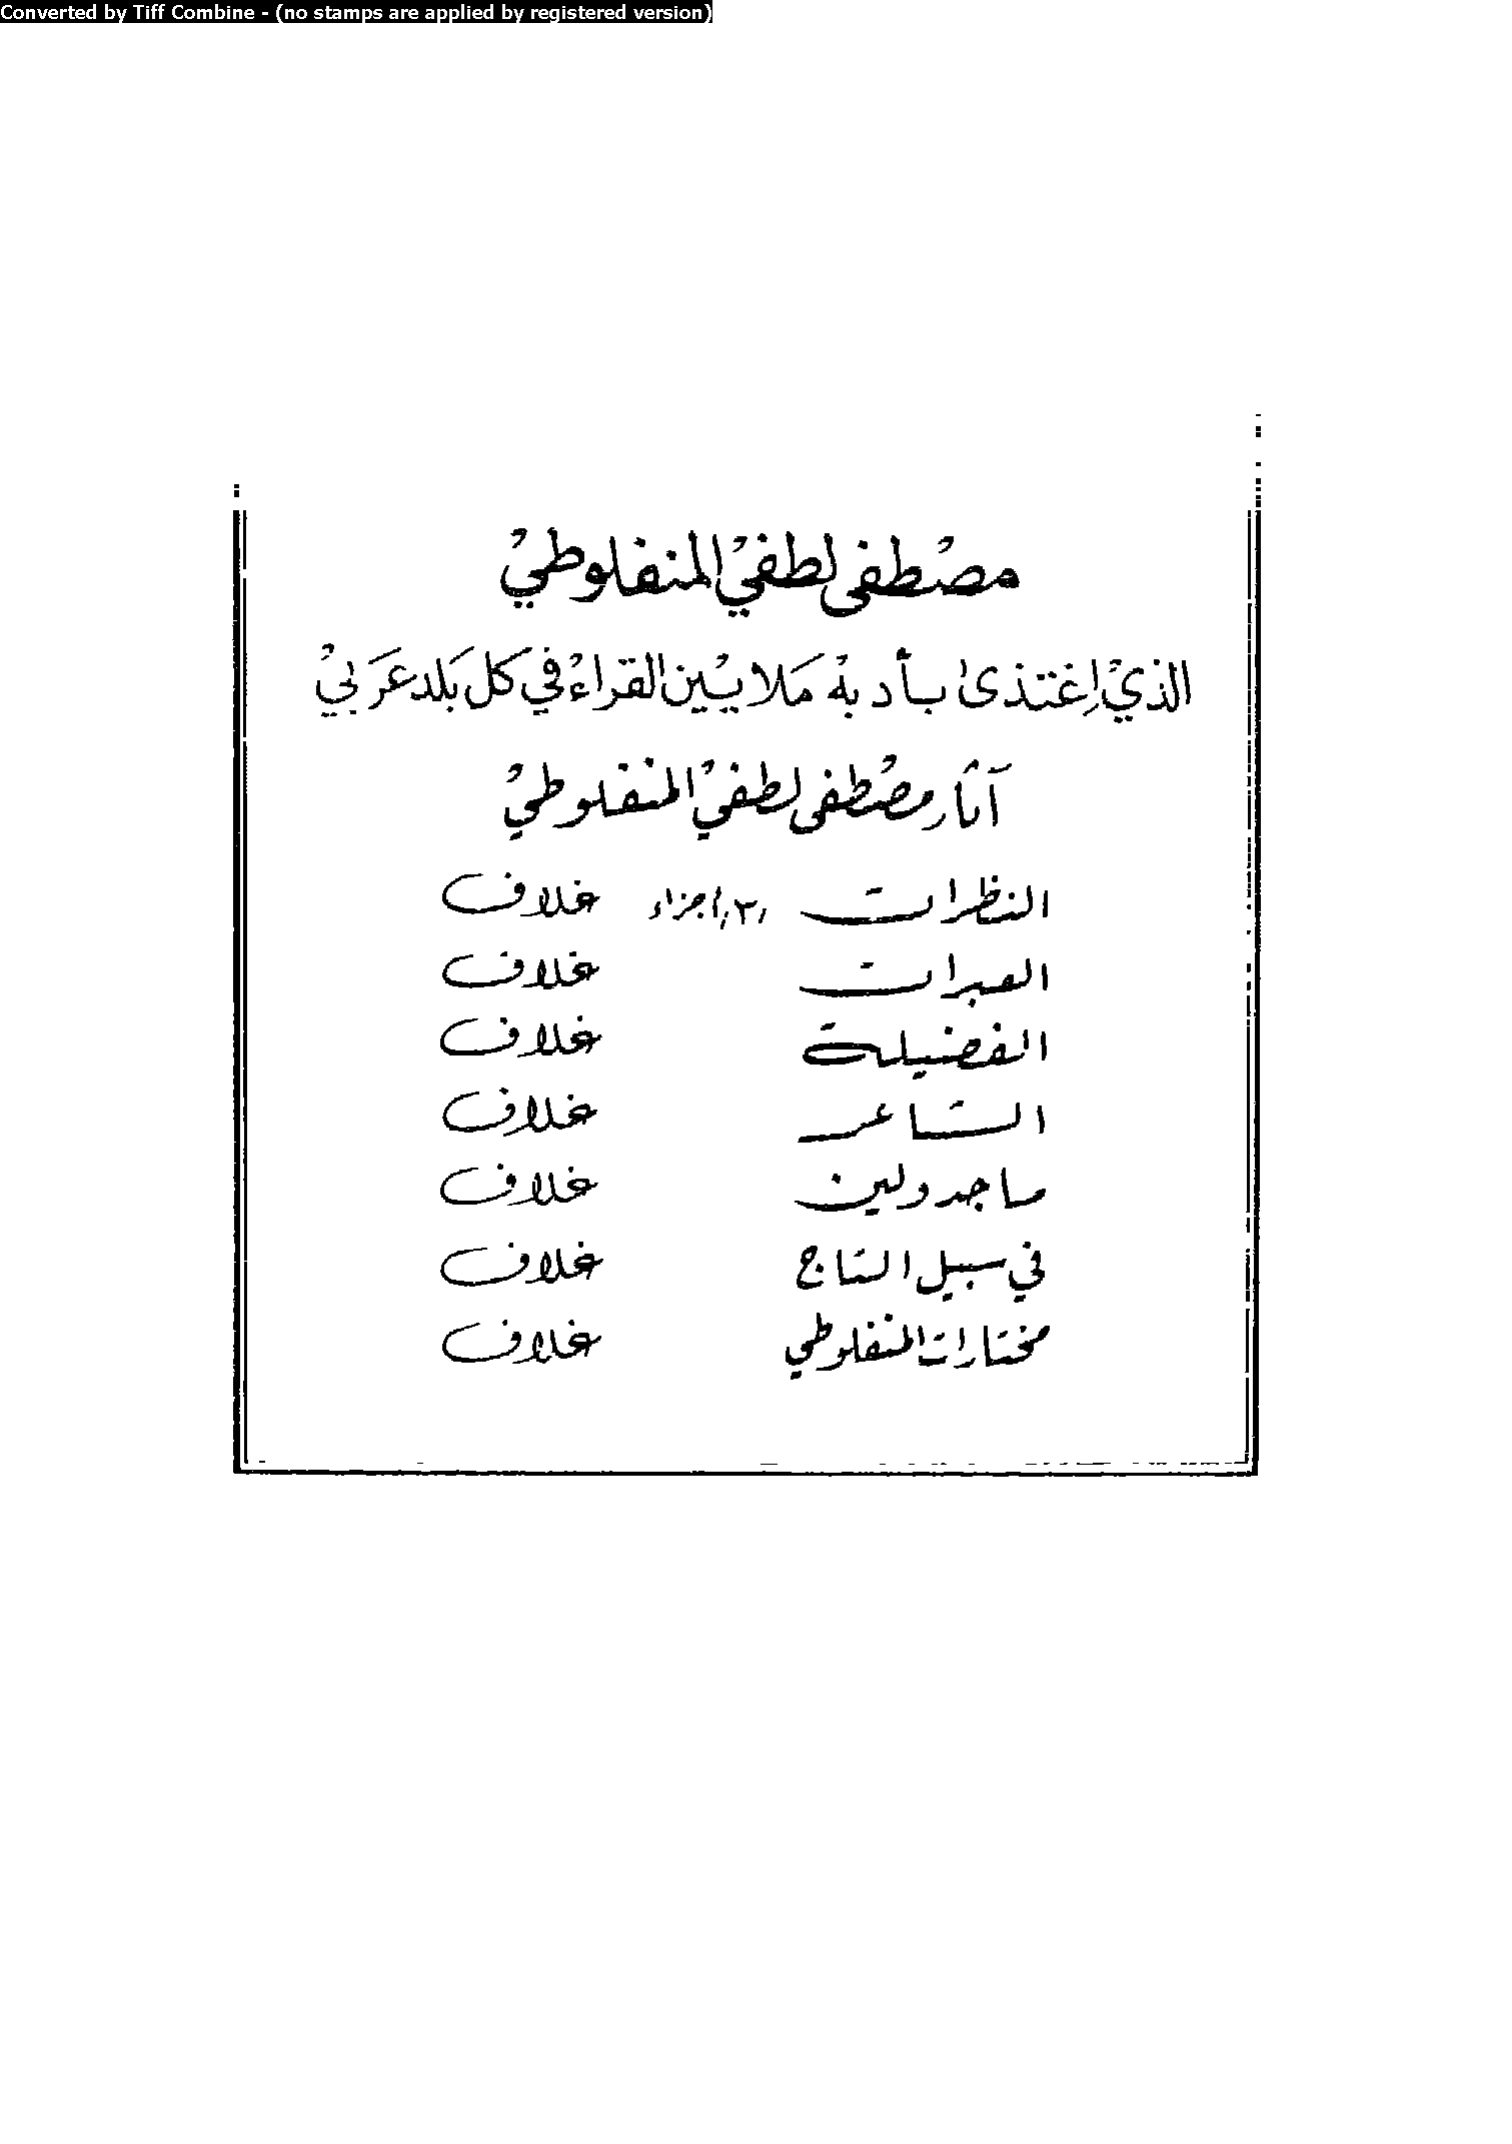 Converted by Tiff Combine - (no stamps are applied by registered version)
مصطفى لطفي المنفلوطي
الذي اغتذى بأدبه ملايين القراء في كل بلد عربي
آثار مصطفى لطفي المنفلوطي
النظرات ٣ أجزاء غلاف
العبرات غلاف
الفضيلة غلاف
الشاعر غلاف
ماجدولين غلاف
في سبيل التاج غلاف
مختارات المنفلوطي غلاف